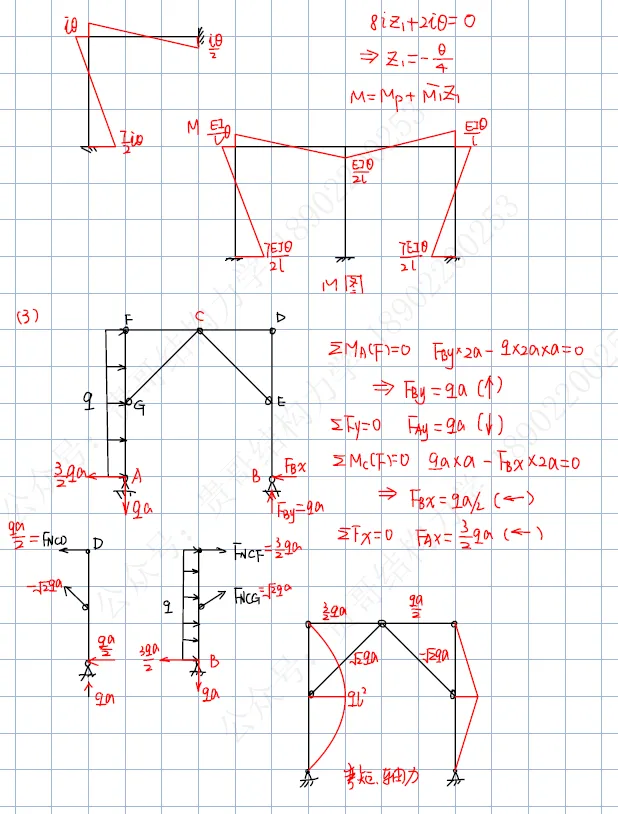 iθ
iθ/2
7/2 iθ
8iz₁+2iθ=0
⇒ z₁=-θ/4
M=Mp+M̄₁z₁
M
EI/l θ
EIθ/2l
EIθ/l
7EIθ/2l
7EIθ/2l
M图
(3)
F
C
D
q
G
E
3/2 qa
A
B
F_Bx
qa
F_By=qa
ΣM_A(F)=0 F_By×2a-q×2a×a=0
⇒ F_By=qa (↑)
ΣFy=0 F_Ay=qa (↓)
ΣM_C(F)=0 qa×a-F_Bx×2a=0
⇒ F_Bx=qa/2 (←)
ΣFx=0 F_Ax=3/2 qa (←)
qa/2=F_NCD
D
-√2qa
qa/2
qa
F_NCF=3/2 qa
q
F_NCG=√2qa
3qa/2
B
qa
3/2 qa
qa/2
√2qa
-√2qa
ql²
弯矩.轴力
公众号：贵哥结构力学18902200253
公众号：贵哥结构力学18902200253